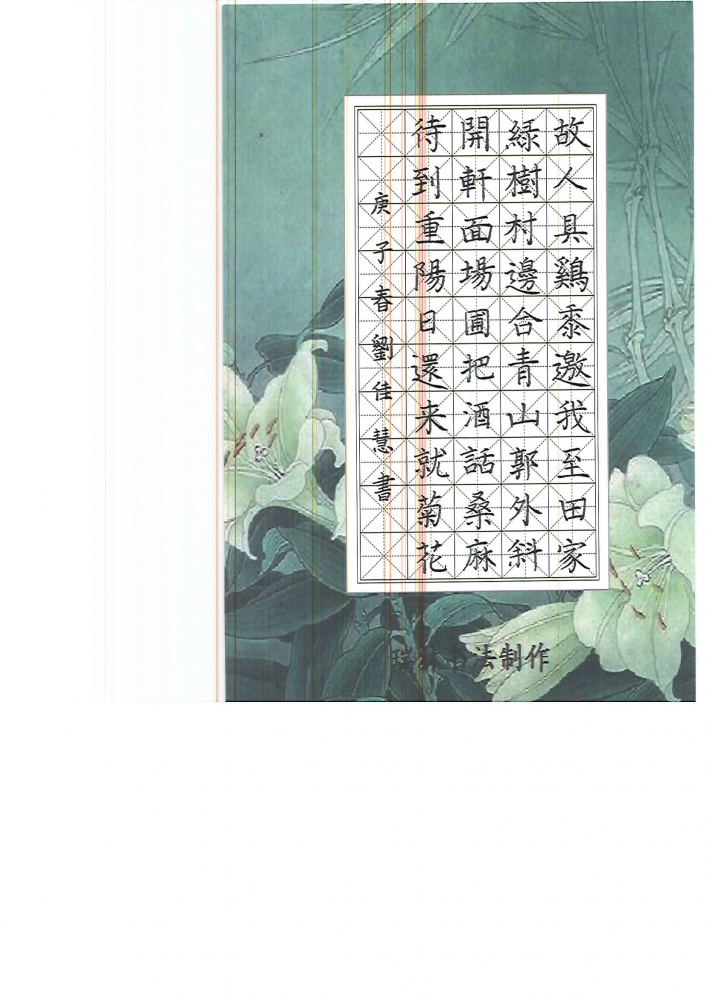 故人具鷄黍邀我至田家
綠樹村邊合青山郭外斜
開軒面場圃把酒話桑麻
待到重陽日還来就菊花
庚子春劉佳慧書
法制作